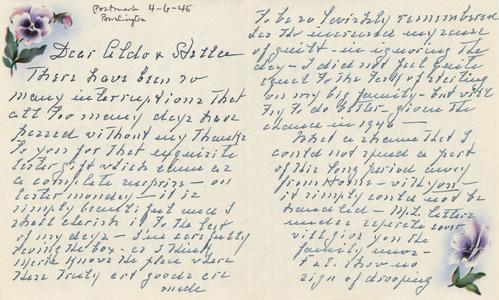 Postmark 4-6-45
Burlington
Dear Aldo &
There have been so
many interruptions that
all too many days have
passed without my thanks
to you for that exquisite
Easter gift which came as
a complete surprise - on
Easter monday - it is
simply beautiful and I
shall cherish it to the last
of my days - I'm carefully
saving the box - as I think
you'd know the place where
these truly art goods are
made
To be so lovingly remembered
has increased my sense
of guilt - in ignoring the
day - I did not feel quite
equal to the task of starting
on my big family - but will
try to do better - given the
chance in 1946 -
What a shame that I
could not spend a part
of this long period away
from Home - with you -
it simply could not be
handled - M.L. letters
under separate cover
will give you the
family news -
show no
sign of drooping